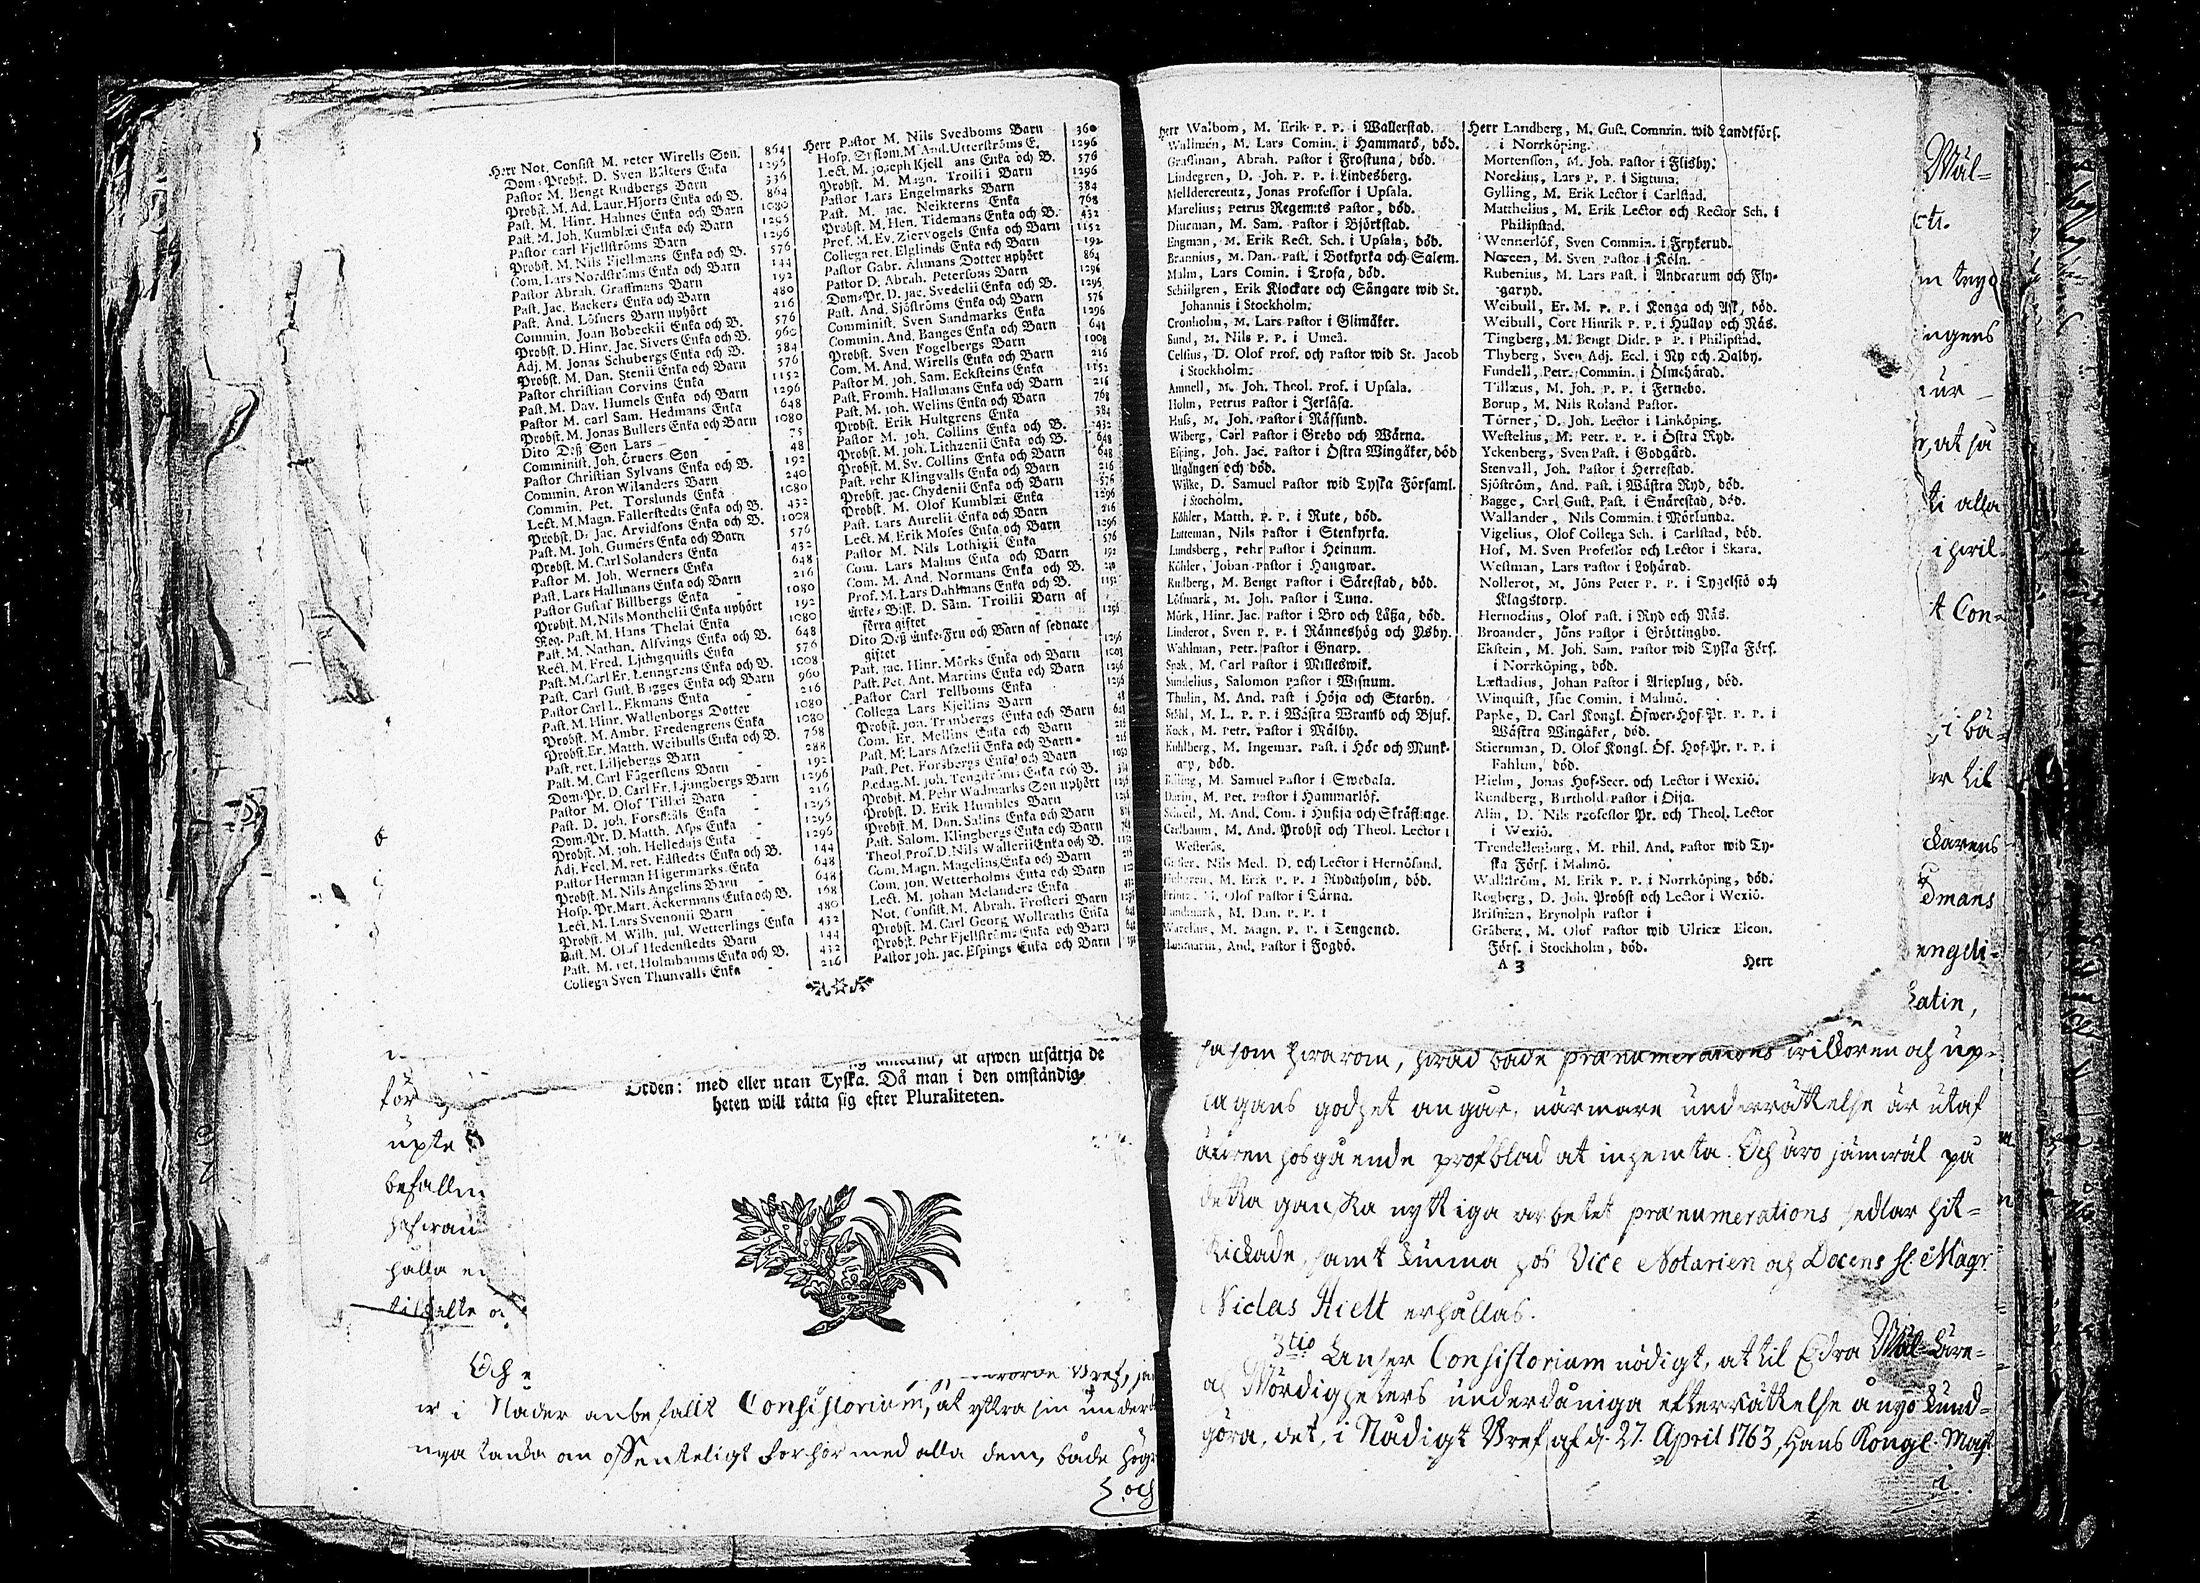 Herr Not. Consist M. Peter Wirells Son. 864
Dom-Probst. D. Sven Bälters Enka 1296
Pastor M. Bengt Rudbergs Barn 336
Probst. M. Ad. Laur. Hjorts Enka och B. 864
Past. M. Hinr. Hahnes Enka och Barn 1080
Past. M. Joh. Kumblæi Enka och Barn 1296
Pastor Carl Fjellströms Barn 1296
Probst. M. Nils Fjellmans Enka och B. 576
Com. Lars Nordströms Enka och Barn 144
Pastor Abrah. Graffmans Barn 192
Past. Jac. Backers Enka och Barn 480
Past. And. Löfners Barn uphört 216
Commin. Joan Bobeckii Enka och B. 576
Probst. D. Hinr. Jac. Sivers Enka och B. 960
Adj. M. Jonas Schubergs Enka och B. 384
Probst. M. Dan. Stenii Enka och Barn 576
Pastor Christian Corvins Enka 1152
Past. M. Dav. Humels Enka och Barn 1296
Pastor M. Carl Sam. Hedmans Enka 648
Probst. M. Jonas Bullers Enka och Barn 1080
Dito Deß Son Lars 75
Comminist. Joh. Gruers Son 48
Pastor Christian Sylvans Enka och B. 192
Commin. Aron Wilanders Barn 240
Commin. Pet. Torslunds Enka 1080
Lect. M. Magn. Fallerstedts Enka och B. 432
Probst. D. Jac. Arvidsons Enka och B. 1008
Past. M. Joh. Gumers Enka och Barn 576
Probst. M. Carl Solanders Enka 432
Pastor M. Joh. Werners Enka 648
Past. Lars Hallmans Enka och Barn 216
Pastor Gustaf Billbergs Enka 1080
Probst. M. Nils Monthelii Enka uphört 192
Reg. Past. M. Hans Thelai Enka 1080
Past. M. Nathan. Alfvings Enka och B. 648
Rect. M. Fred. Ljungquists Enka 576
Past. M. Carl Er. Lenngrens Enka och B. 1008
Past. Carl Gust. Bagges Enka och Barn 960
Pastor Carl L. Ekmans Enka 216
Past. M. Hinr. Wallenborgs Dotter 1080
Probst. M. Ambr. Fredengrens Enka 1080
Probst. Er. Matth. Weibulls Enka och B. 768
Past. Pet. Liljebergs Barn 288
Past. M. Carl Fågerstens Barn 192
Dom-Pr. D. Carl Fr. Ljungbergs Barn 1296
Pastor M. Olof Tillæi Barn 216
Past. D. Joh. Forsskåls Enka 1296
Dom-Pr. D. Matth. Asps Enka 1296
Probst. M. Joh. Helledajs Enka 1296
Adj. Feel. M. Pet. Edstedts Enka och B. 144
Pastor Herman Högermarks Enka 648
Probst. M. Nils Angelins Barn 648
Hosp. Pr. Mart. Ackermans Enka och B. 168
Lect. M. Lars Svenonii Barn 480
Probst. M. Wilh. Jul. Wetterlings Enka 432
Past. M. Olaf Hedenstedts Barn 144
Past. M. Pet. Holmbaums Enka och B. 432
Collega Sven Thunvalls Enka 216
Herr Pastor M. Nils Svedboms Barn 360
Hosp. Syslom. M And. Utterströms E. 1296
Lect. M. Joseph Kjell ans Enka och B. 576
Probst. M. Magn. Troilii Barn 1296
Pastor Lars Engelmarks Barn 384
Past. M. Jac. Neikterns Enka 768
Probst. M. Hen. Tidemans Enka och B. 432
Prof. M. Ev. Ziervogels Enka och Barn 1152
Collega Pet. Elglinds Enka och Barn 192
Pastor Gabr. Ålmans Dotter uphört 864
Pastor D. Abrah. Petersons Barn 1296
Dom-Pr. D. Jac. Svedelii Enka och B. 1296
Past. And. Sjöströms Enka och Barn 576
Comminist. Sven Sandmarks Enka 1296
Commin. And. Banges Enka och Barn 648
Probst. Sven Fogelbergs Barn 1008
Com. M. And. Wirells Enka och Barn 216
Pastor M. Joh. Sam. Ecksteins Enka 1152
Past. Fromh. Hallmans Enka och Barn 216
Past. M. Joh. Welins Enka och Barn 768
Probst. Erik Hultgrens Enka 384
Pastor M. Joh. Collins Enka och B. 432
Probst. M. Joh. Lithzenii Enka och B. 648
Probst. M. Sv. Collins Enka och Barn 648
Past. Pehr Klingvalls Enka och Barn 216
Probst. Jac. Chydenii Enka och Barn 576
Probst. M. Olof Kumblæi Enka 1296
Past. Lars Aurelii Enka och Barn 216
Lect. M. Erik Moses Enka och Barn 1296
Pastor M. Nils Lothigii Enka 576
Com. Lars Malms Enka och Barn 192
Com. M. And. Normans Enka och B. 240
Prof. M. Lars Dahlmans Enka och B. 1152
Ärke-Bisk. D. Säm. Troilii Barn af
förra giftet 1296
Dito Deß änke-Fru och Barn af sednare
giftet 1296
Past. Jac. Hinr. Mörks Enka och Barn 1008
Past. Pet. Ant. Martins Enka och Barn 1296
Pastor Carl Tellboms Enka 1296
Collega Lars Kjellins Barn 48
Probst. Jon. Tranbergs Enka och Barn
Com. Er. Mellins Enka och Barn 216
Past. M. Lars Afzelii Enka och Barn 216
Past. Pet. Forsbergs Enka och Barn
Pædag. M. Joh. Tengströms Enka och B.
Probst. M. Pehr Wadmarks Son uphört
Probst. D. Erik Humbles Barn
Probst. M. Dan. Salins Enka och Barn
Past. Salom. Klingbergs Enka och Barn
Theol. Prof. D. Nils Wallerii Enka och B.
Com. Magn. Magelins Enka och Barn
Com. Jon. Wetterholms Enka och Barn
Lect. M. Johan Melanders Enka
Not. Consist. M. Abrah. Frosteri Barn
Probst. M. Carl Georg Wollraths Enka
Probst. Pehr Fjellströms Enka och Barn
Pastor Joh. Jac. Espings Enka och Barn
at äfwen utsättja de
Orden: med eller utan Tyska. Då man i den omständig-
heten will rätta sig efter Pluraliteten.
för
upte
befallin
hålla
Och e
er i Nåder anbefallt Consistorium, at yttra sin under
nga tanka om offenteligt förhör med alla dem, både högr
och
Herr Walbom, M. Erik P. P. i Wallerstad.
Wallmén, M. Lars Comin. i Hammarö, död.
Graffman, Abrah. Pastor i Frostuna, död.
Lindegren, D. Joh. P. P. i Lindesberg.
Mellderereutz, Jonas Professor i Upsala.
Marelius, Petrus Regem:ts Pastor, död.
Diurman, M. Sam. Pastor i Björkstad.
Engman, M. Erik Rect. Sch. i Upsala, död.
Brannius, M. Dan. Past. i Botkyrka och Salem.
Malm, Lars Comin. i Trosa, död.
Schillgren, Erik Klockare och Sångare wid St.
Johannis i Stockholm.
Cronholm, M. Lars Pastor i Glimåker.
Sund, M. Nils P. P. i Umeå.
Celsius, D. Olof Prof. och Pastor wid St. Jacob
i Stockholm.
Amnell, M. Joh. Theol. Prof. i Upsala.
Holm, Petrus Pastor i Jerläsa.
Huss, M. Joh. Pastor i Näfsund.
Wiberg, Carl Pastor i Grebo och Wärna.
Esping, Joh. Jac. Pastor i Östra Wingåker, död
Utgången och död.
Wilke, D. Samuel Pastor wid Tyska Församl.
i Stocholm.
Köhler, Matth. P. P. i Rute, död.
Lutteman, Nils Pastor i Stenkyrka.
Lundsberg, Pehr Pastor i Heinum.
Köhler, Johan Pastor i Hangwar.
Rudberg, M. Bengt Pastor i Särestad, död.
Löfmark, M. Joh. Pastor i Tuna.
Mörk, Hinr. Jac. Pastor i Bro och Låßa, död.
Linderot, Sven P. P. i Ränneshög och Ysby.
Wahlman, Petr. Pastor i Gnarp.
Spak, M. Carl Pastor i Milleswik.
Sundelius, Salomon Pastor i Wisnum.
Thulin, M. And. Past i Höja och Starby.
Ståhl, M. L. P. P. i Wästra Wramb och Bjuf.
Kock, M. Petr. Pastor i Målby.
Kuhlberg, M. Ingemar. Past. i Hör och Munk-
arp, död.
Billing, M. Samuel Pastor i Swedala.
Darin, M. Pet. Pastor i Hammarlöf.
M. And. Com. i Husija och Skräflinge.
Carlbaum, M. And. Probst och Theol. Lector i
Westerås.
Nils Med. D. och Lector i Hernösand.
M. Erik P. P. i Rydaholm, död.
Olof Pastor i Tärna.
Landmark, M. Dan. P. P. i
M. Magn. P. P. i Tengened.
Hammarin, And. Pastor i Fogdö.
Herr Landberg, M. Gust. Commin. wid Landtförs.
i Norrköping.
Mortensson, M. Joh. Pastor i Flisby.
Norelius, Lars P. P. i Sigtuna.
Gylling, M. Erik Lector i Carlstad.
Matthelius, M. Erik Lector och Rector Sch. i
Philipstad.
Wennerlöf, Sven Commin. i Frykerud.
Noreen, M. Sven Pastor i Köln.
Rubenius, M. Lars Past. i Andrarum och Fly-
garyd.
Weibull, Er. M. P. P. i Konga och Ask, död.
Weibull, Cort Hinrik P. P. i Hullap och Näs.
Tingberg, M. Bengt Didr. P P. i Philipstad.
Thyberg, Sven Adj. Eccl. i Ny och Dalby.
Fundell, Petr. Commin. i Ölmehärad.
Tillæus, M. Joh. P. P. i Fernebo.
Borup, M. Nils Roland Pastor.
Törner, D. Joh. Lector i Linköping.
Westelius, M. Petr. P. P. i Östra Ryd.
Yckenberg, Sven Past. i Godgård.
Stenvall, Joh. Pastor i Herrestad.
Sjöström, And. Past. i Wästra Ryd, död.
Bagge, Carl Gust. Past. i Snärestad, död.
Wallander, Nils Commin. i Mörlunda.
Vigelius, Olof Collega Sch. i Carlstad, död.
Hof, M. Sven Professor och Lector i Skara.
Westman, Lars Pastor i Lohärad.
Nollerot, M. Jöns Peter P. P. i Tygelsiö och
Klagstorp.
Hernodius, Olof Past. i Ryd och Näs.
Broander, Jöns Pastor i Gröttingbo.
Ekstein, M. Joh. Sam. Pastor wid Tyska Förs.
i Norrköping, död.
Læstadius, Johan Pastor i Arieplug, död.
Winquist, Isac Comin. i Malmö.
Papke, D. Carl Kongl. Öfwer-Hof-Pr. P. P. i
Wästra Wingåker, död.
Stiernman, D. Olof Kongl. Öf. Hof-Pr. P. P. i
Fahlun, död.
Hielm, Jonas Hof-Secr. och Lector i Wexiö.
Rundberg, Barthold Pastor i Oija.
Alin, D. Nils Professor Pr. och Theol. Lector
i Wexiö.
Trendellenburg, M. Phil. And. Pastor wid Ty-
ska Förs. i Malmö.
Wallström, M. Erik P. P. i Norrköping, död.
Rogberg, D. Joh. Probst och Lector i Wexiö.
Brisman, Brynolph Pastor i
Gråberg, M. Olof Pastor wid Ulricæ Eleon.
Förs. i Stockholm, död.
A 3 Herr
Mäl-
ingens
r, at så
ti alla
i hvil-
t Con-
i bå-
er til
dmans
engeli-
Latin,
såsom hvarom, hvad både prænumerations vilkoren och up-
lagans godhet angår, närmare underrättelse är utaf
även hosgående profblad at inhemta. Och äro jämväl på
detta ganska nyttiga arbetet prænumerations sedlar hit-
skickade, samt kunna hos Vice Notarien och Docens H. Magr.
Niclas Hielt erhållas.
3tio Anser Consistorium nödigt, at til Edra Mäl- Äre-
och Wördigheters underdåniga efterrättelse å nyo kund-
göra, det, i Nådigt Bref af d. 27. April 1763, Hans Kongl. Maj:t
i